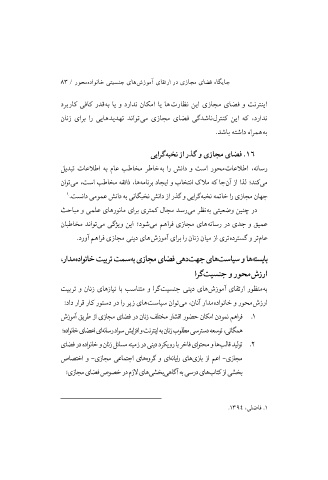 جایگاه فضای مجازی در ارتقای آموزش‌های جنسیتی خانواده‌محور / ۸۳
اینترنت و فضای مجازی این نظارت‌ها یا امکان ندارد و یا به‌قدر کافی کاربرد
ندارد، که این کنترل‌ناشدگی فضای مجازی می‌تواند تهدیدهایی را برای زنان
به‌همراه داشته باشد.
۱۶. فضای مجازی و گذر از نخبه‌گرایی
رسانه، اطلاعات‌محور است و دانش را به‌خاطر مخاطب عام به اطلاعات تبدیل
می‌کند؛ لذا از آن‌جا که ملاک انتخاب و ایجاد برنامه‌ها، ذائقه مخاطب است، می‌توان
جهان مجازی را خاتمه نخبه‌گرایی و گذر از دانش نخبگانی به دانش عمومی دانست.۱
در چنین وضعیتی به‌نظر می‌رسد مجال کمتری برای مانورهای علمی و مباحث
عمیق و جدی در رسانه‌های مجازی فراهم می‌شود؛ این ویژگی می‌تواند مخاطبان
عام‌تر و گسترده‌تری از میان زنان را برای آموزش‌های دینی مجازی فراهم آورد.
بایسته‌ها و سیاست‌های جهت‌دهی فضای مجازی به‌سمت تربیت خانواده‌مدار،
ارزش‌محور و جنسیت‌گرا
به‌منظور ارتقای آموزش‌های دینی جنسیت‌گرا و متناسب با نیازهای زنان و تربیت
ارزش‌محور و خانواده‌مدار آنان، می‌توان سیاست‌های زیر را در دستور کار قرار داد:
۱. فراهم نمودن امکان حضور اقشار مختلف زنان در فضای مجازی از طریق آموزش
همگانی، توسعه دسترسی مطلوب زنان به اینترنت و افزایش سواد رسانه‌ای اعضای خانواده؛
۲. تولید قالب‌ها و محتوای فاخر با رویکرد دینی در زمینه مسائل زنان و خانواده در فضای
مجازی- اعم از بازی‌های رایانه‌ای و گروه‌های اجتماعی مجازی- و اختصاص
بخشی از کتاب‌های درسی به آگاهی‌بخشی‌های لازم در خصوص فضای مجازی؛
۱. فاضلی، ۱۳۹۴.